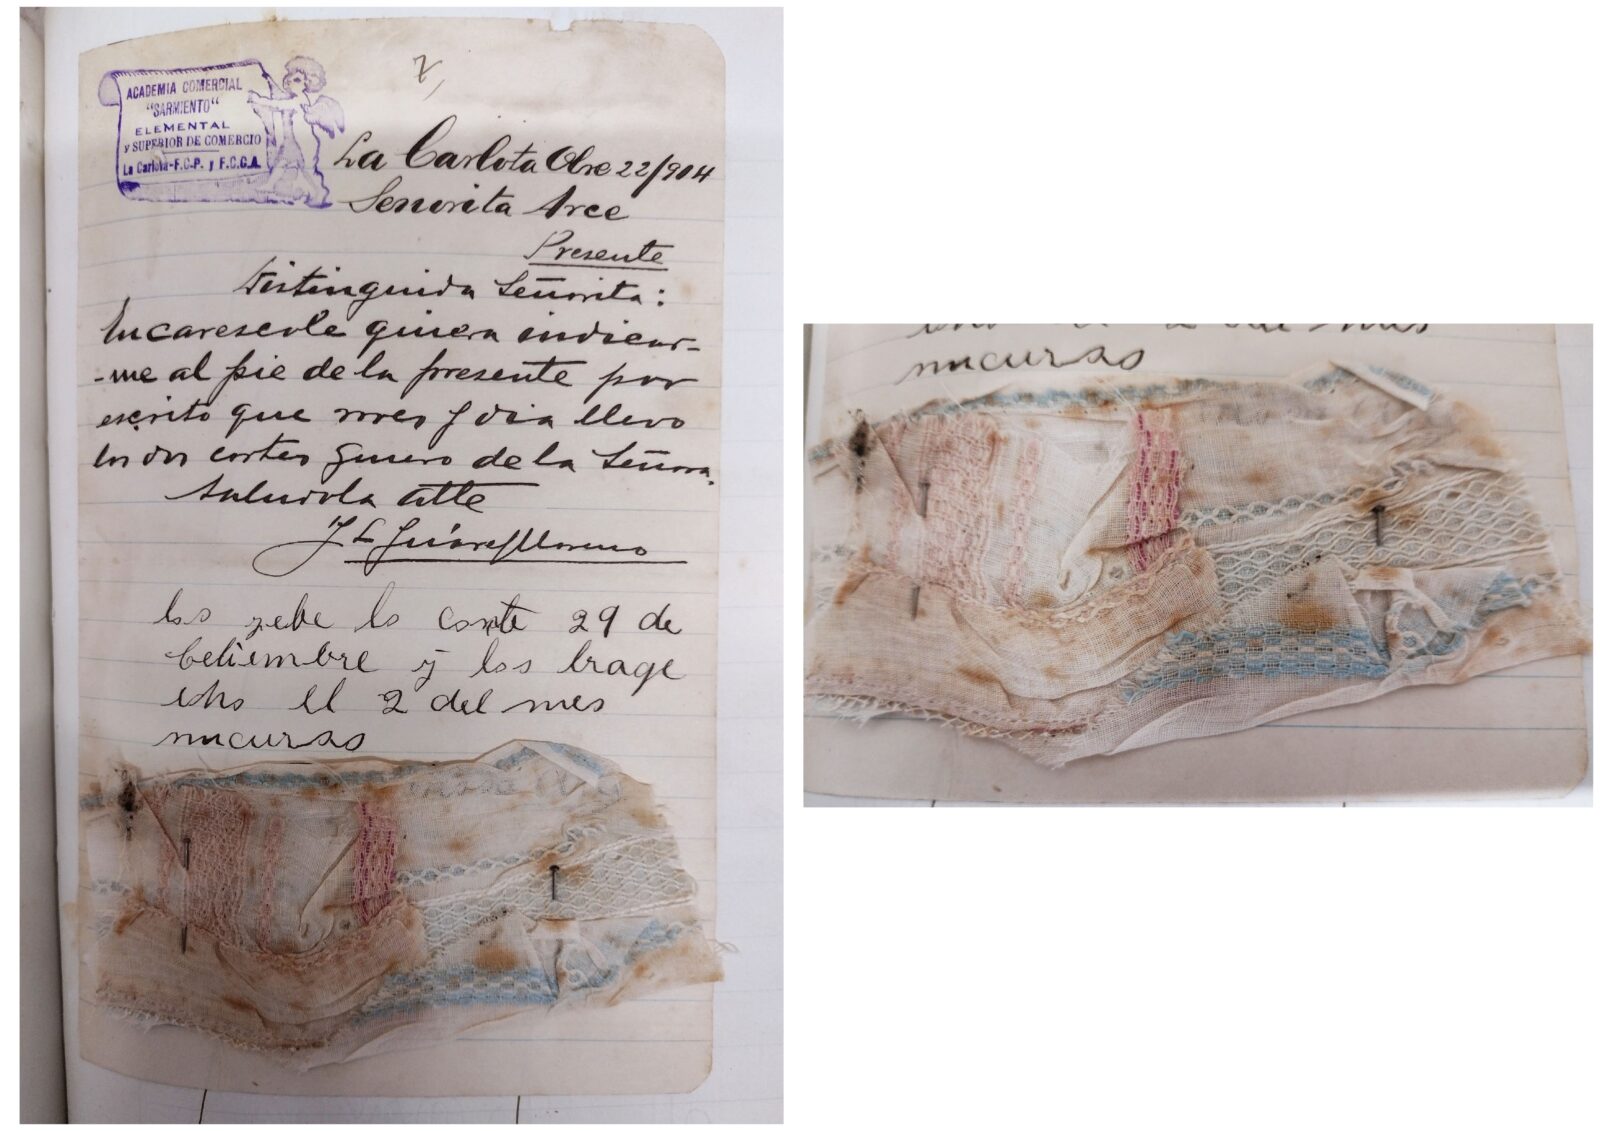 7,
ACADEMIA COMERCIAL
"SARMIENTO"
ELEMENTAL
y SUPERIOR DE COMERCIO
La Carlota-F.C.P. y F.C.C.A.
La Carlota Obre 22/904
Señorita Arce
Presente
Distinguida Señorita:
Encarescole quiera indicar-
-me al pie de la presente por
escrito que mes y dia llevo
los dos cortes genero de la Señora.
Saludola Atte
J L Juárez Moreno
los rebe lo corte 29 de
Cetiembre y los trage
el 2 del mes
nucurso
2 del mes
nucurso